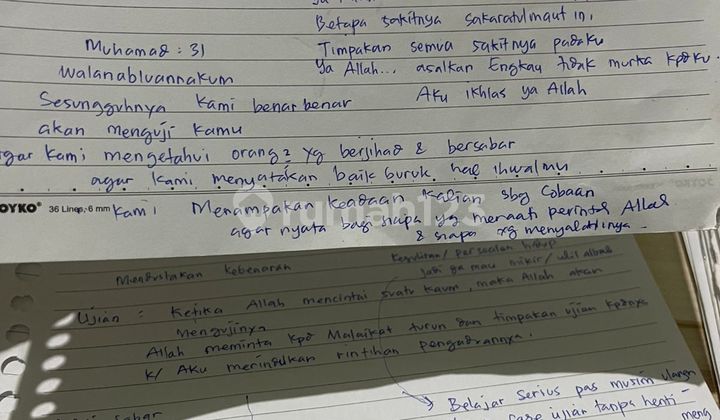 Betapa sakitnya sakaratulmaut ini,
Timpakan semua sakitnya padaku
Ya Allah... asalkan Engkau tidak murka kpdku.
Aku ikhlas ya Allah
Muhamad : 31
walanabluannakum
Sesungguhnya kami benar benar
akan menguji kamu
agar kami mengetahui orang2 yg berjihad & bersabar
agar kami menyatakan baik buruk hal ihwalmu
JOYKO® 36 Lines, 6 mm
kami Menampakan keadaan kalian sbg Cobaan
agar nyata bagi siapa yg menaati perintah Allah
& siapa yg menyalahinya.
rumah123
Mendustakan kebenaran
Kesulitan / persoalan hidup
jadi ga mau mikir /
Ujian : Ketika Allah mencintai suatu kaum, maka Allah akan
mengujinya
Allah meminta kpd Malaikat turun dan timpakan ujian kpdnya
k/ Aku merindukan rintihan pengaduannya.
→ Belajar serius pas musim ulangan
ujian tanpa henti -